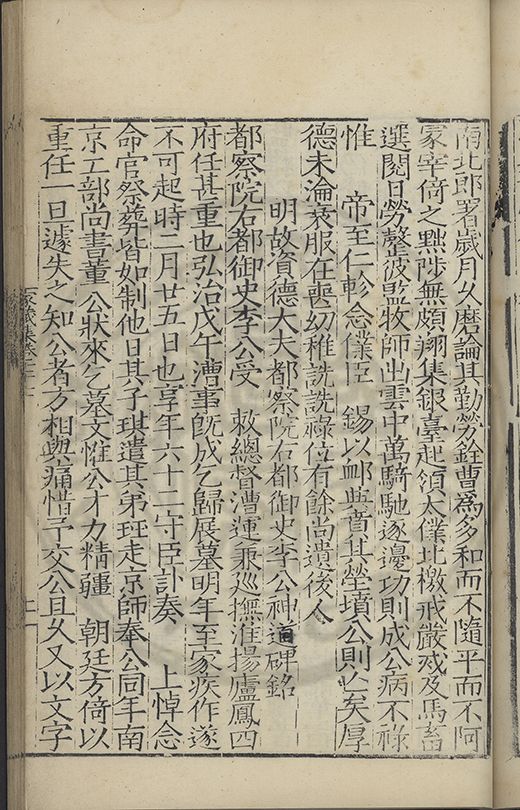 南北郎署歲月久磨論其勤勞銓曹爲多和而不隨平而不阿
冡宰倚之黜陟無頗翔集銀臺起領太僕北檄戒嚴戎及馬畜
選閱日勞鼛彼監牧師出雲中萬騎馳逐邊功則成公病不祿
惟 帝至仁軫念僕臣 錫以䘏典賁其塋墳公則亡矣厚
德未淪衰服在喪幼稚詵詵祿位有餘尚遺後人
明故資德大夫都察院右都御史李公神道碑銘
都察院右都御史李公受 敕總督漕運兼廵撫淮揚廬鳳四
府任甚重也弘治戊午漕事旣成乞歸展墓明年至家疾作遂
不可起時二月廿五日也享年六十二守臣訃奏 上悼念
命官祭葬皆如制他日其子琪遣其弟珏走京師奉公同年南
京工部尚書董 公狀來乞墓文惟公才力精疆 朝廷方倚以
重任一旦遽失之知公者方相與痛惜予交公且久又以文字